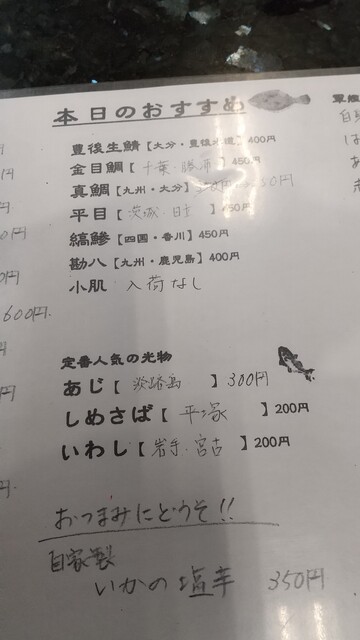 本日のおすすめ
豊後生鯖【大分・豊後水道】400円
金目鯛【千葉・勝浦】450円
真鯛【九州・大分】50円
平目【茨城・日立】450円
縞鯵【四国・香川】450円
勘八【九州・鹿児島】400円
小肌 入荷なし
600円
定番人気の光物
あじ【淡路島】300円
しめさば【平塚】200円
いわし【岩手・宮古】200円
おつまみにどうぞ!!
自家製
いかの塩辛 350円